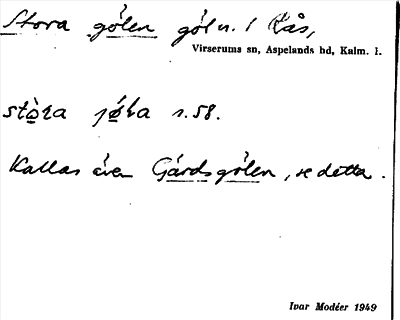 Stora gölen göl n. / Rås,
Virserums sn, Aspelands hd, Kalm. l.
s. 58.
Kallas även Gårdsgölen, se detta.
Ivar Modéer 1949